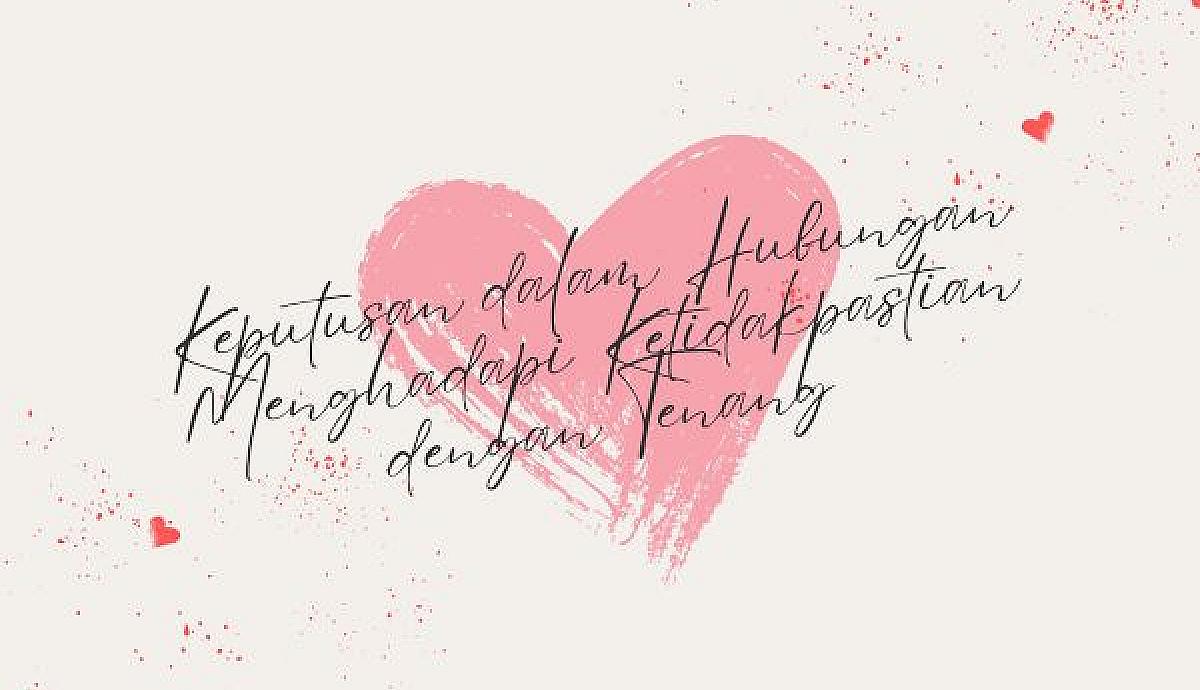 Keputusan dalam Hubungan
Menghadapi Ketidakpastian
dengan Tenang